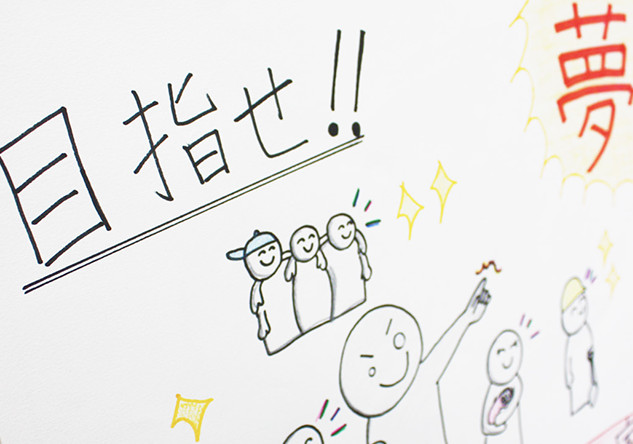 目指せ!!
夢